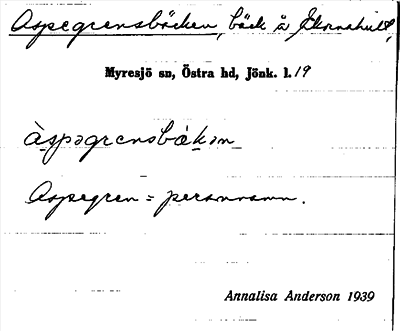 Aspegrensbäcken, bäck å Ekornahult,
Myresjö sn, Östra hd, Jönk. l. 19
àspəgrensbäkən
Aspegren = personnamn.
Annalisa Anderson 1939